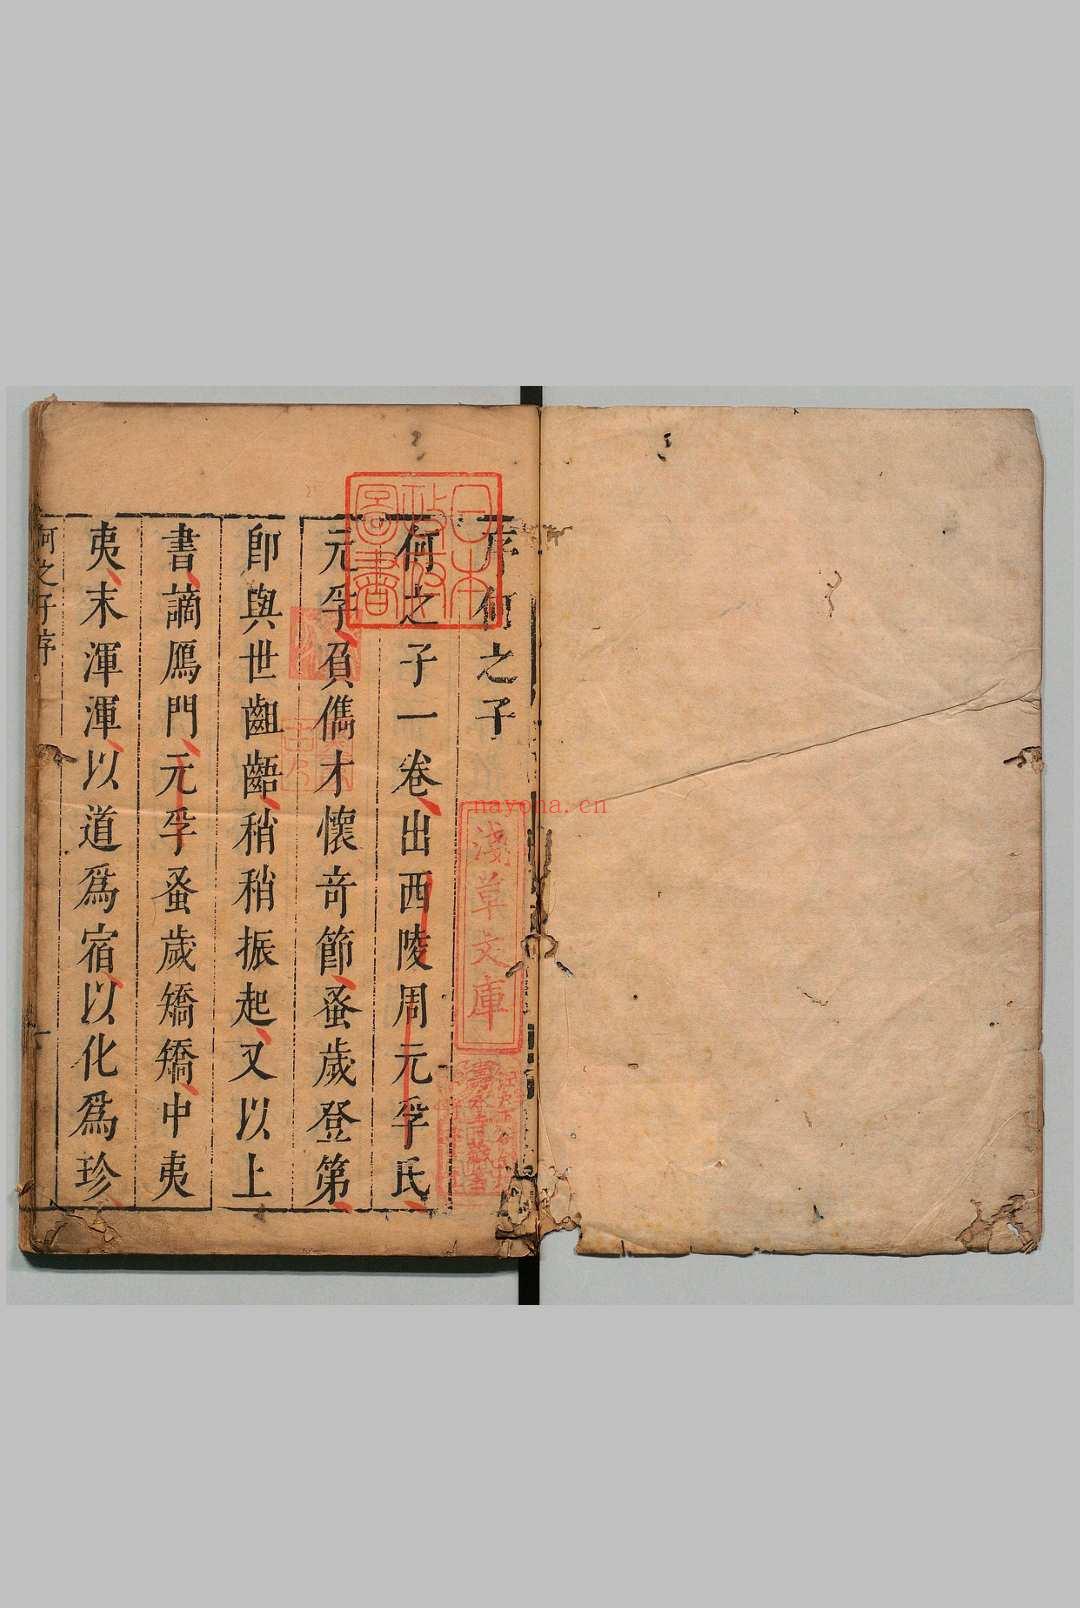 序何之子
何之子一卷出西陵周元孚氏
元孚負儁才懷竒節蚤歲登第
卽與世齟齬稍稍振起又以上
書謫鴈門元孚蚤歲矯矯中夷
夷末渾渾以道爲宿以化爲珍
何之子序
一
日本政府圖書
淺草文庫
nayona.cn